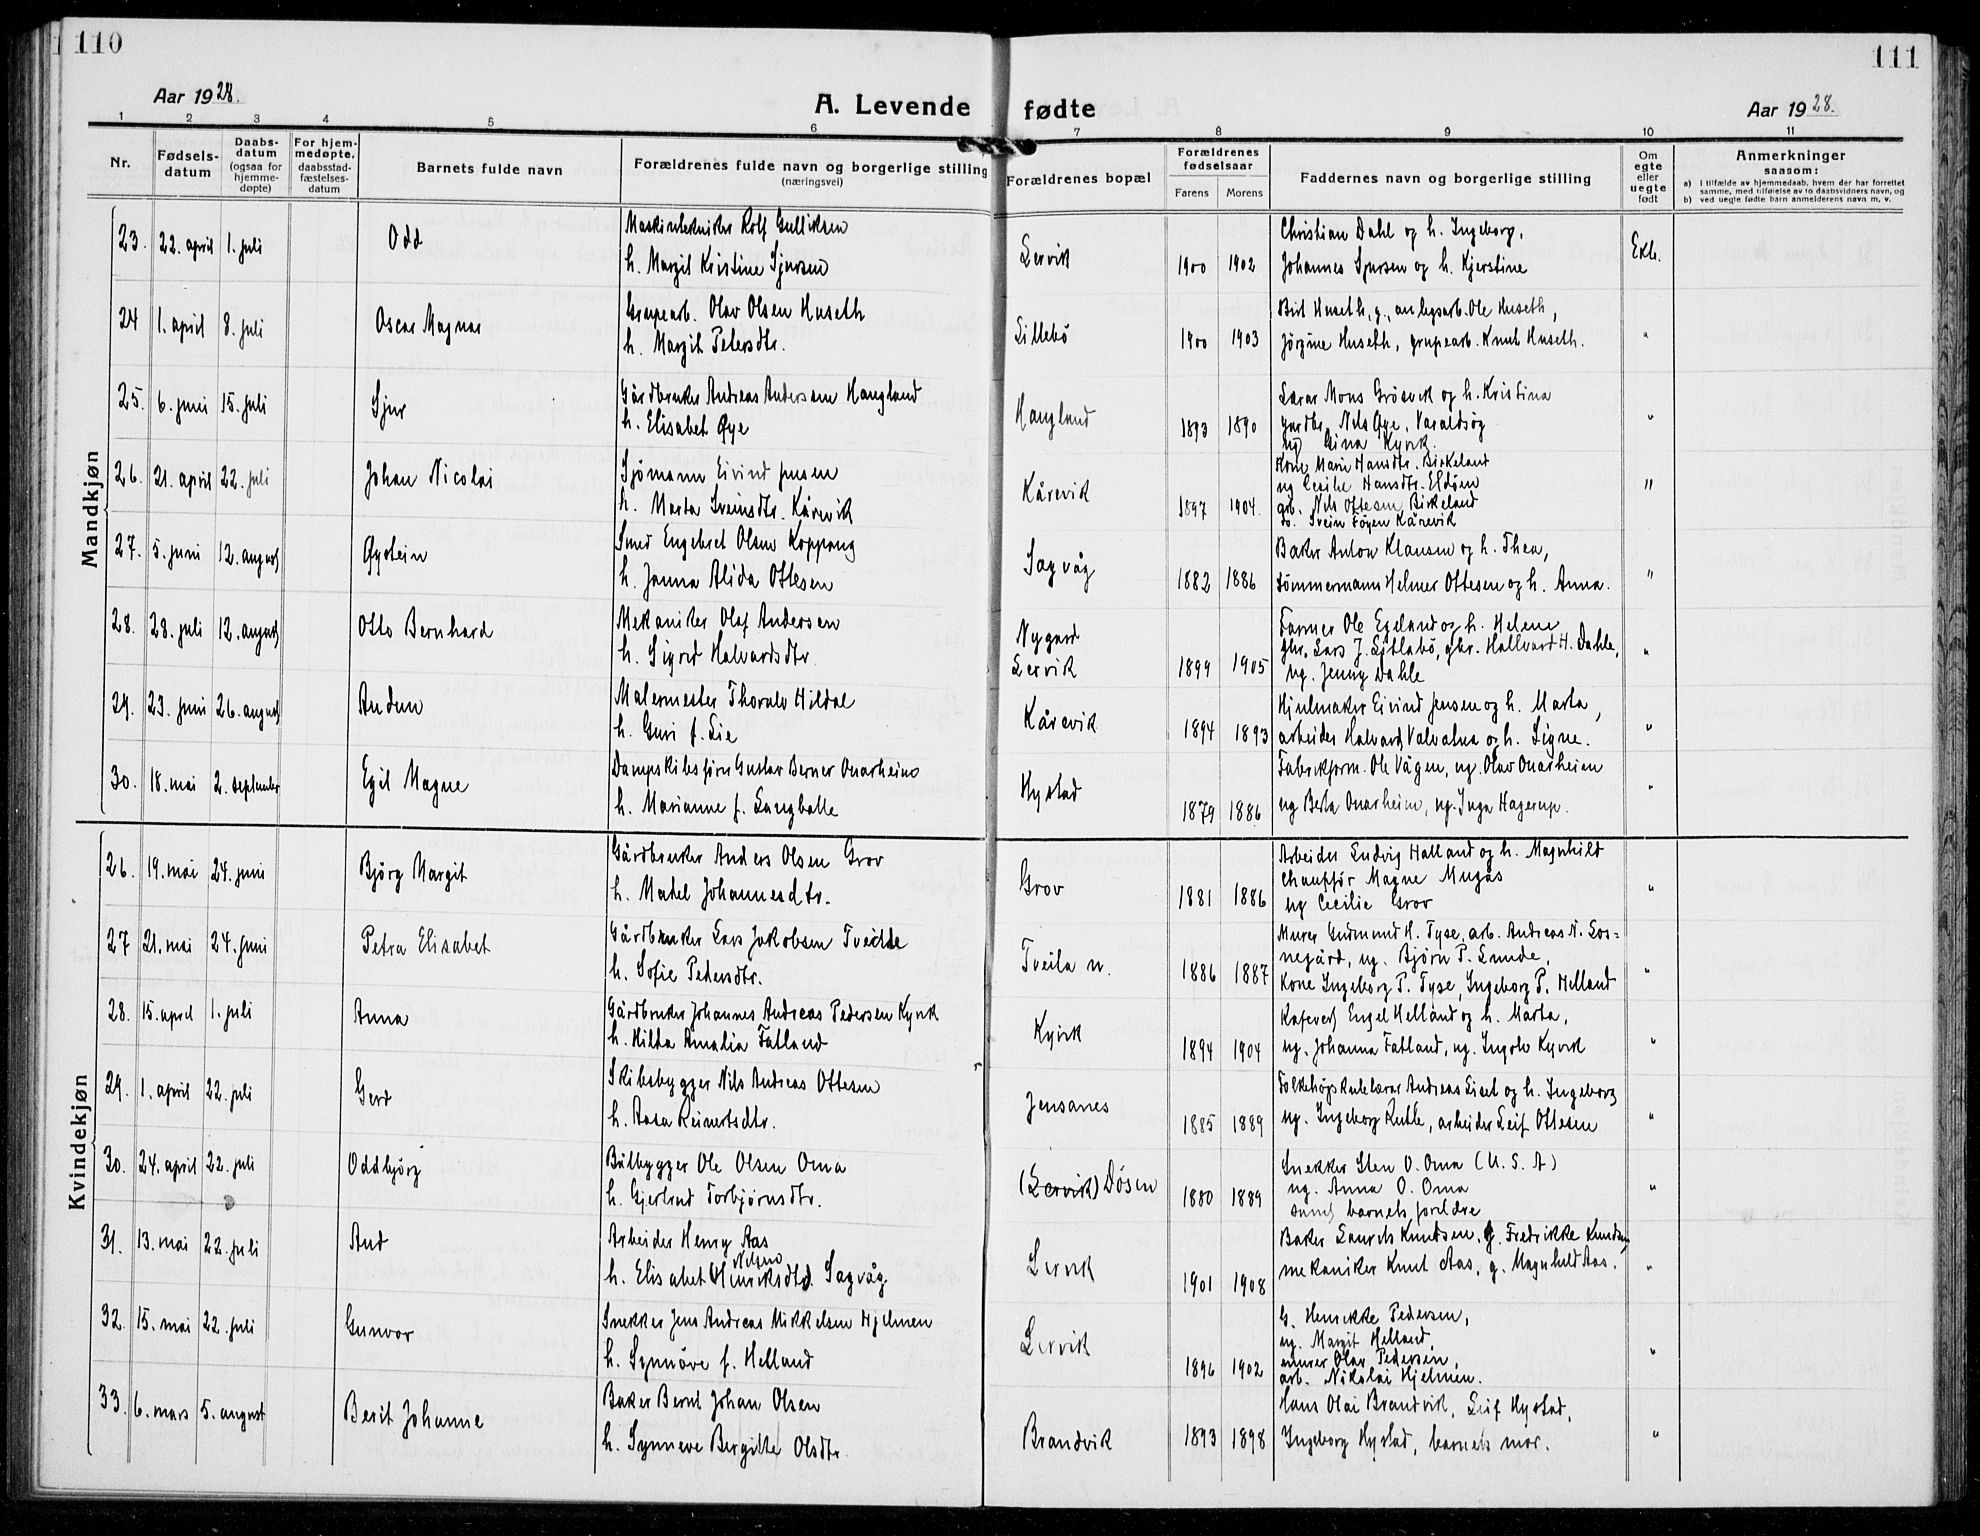 110
111
Aar 1928.
A. Levende fødte
Aar 1928.
1 2 3 4 5 6 7 8 9 10 11
Nr.
Fødsels-
datum
Daabs-
datum
(ogsaa for
hjemme-
døpte)
For hjem-
medøpte,
daabsstad-
fæstelses-
datum
Barnets fulde navn
Forældrenes fulde navn og borgerlige stilling
(næringsvei)
Forældrenes bopæl
Forældrenes
fødselsaar
Farens
Morens
Faddernes navn og borgerlige stilling
Om
egte
eller
uegte
født
Anmerkninger
saasom:
a) I tilfælde av hjemmedaab, hvem der har forrettet
samme, med tilføielse av to daabsvidners navn, og
b) ved uegte fødte barn anmelderens navn m. v.
Mandkjøn
23. 22. april 1. juli Odd
Maskintekniker Rolf Gulliksen
h. Margit Kristine Sjursen
Lervik 1900 1902
Christian Dahl og h. Ingeborg,
Johannes Sjursen og h. Kjerstine
Ekt.
24 1. april 8. juli Oscar Magnar
Grupearb. Olav Olsen Huseth
h. Margit Petersdtr.
Lillebö 1900 1903
Birt Huseth, g., anlegsarb. Ole Huseth,
Jörgine Huseth, grupearb. Knut Huseth.
"
25. 6. juni 15. juli Sjur
Gårdbruker Andreas Andersen Haugland
h. Elisabet Øye
Haugland 1893 1890
Lærar Mons Grösvik og h. Kristina
gardbr. Nils Øye, Varaldsøy
ug Gina Kyvik.
"
26. 21. april 22. juli Johan Nicolai
Sjömann Eivind Jensen
h. Marta Sveinsdtr. Kårevik
Kårevik 1897 1904
Kone Marie Hansdtr. Birkeland
ug Cecilie Hansdtr. Eldøen
gb. Nils Ottesen Birkeland
Svein Föyen Kårevik
"
27. 5. juni 12. august Øystein
Smed Engebret Olsen Koppang
h. Janna Alida Ottesen
Sagvåg 1882 1886
Baker Anton Klausen og h. Thea,
tömmermann Helmer Ottesen og h. Anna.
"
28. 28. juli 12. august Otto Bernhard
Mekaniker Olaf Andersen
h. Sigrid Halvardsdtr.
Nygard
Lervik 1899 1905
Farmer Ole Egeland og h. Helene
gbr. Lars J. Litlabö, gbr. Hallvard H. Dahle,
ug. Jenny Dahle
"
29. 23. juni 26. august Audun
Malermester Thoralv Hildal
h. Guri f. Lie
Kårevik 1894 1893
Hjulmaker Eivind Jensen og h. Marta,
arbeider Halvard Valvatna og h. Signe.
"
30. 18. mai 2. september Egil Magne
Dampskibsförer Gustav Berner Onarheim
h. Marianne f. Langballe
Hystad 1879 1886
Fabrikform. Ole Vågen, ug. Olav Onarheim
ug Berta Onarheim, ug. Inga Hagerup.
"
Kvindekjøn
26. 19. mai 24. juni Bjørg Margit
Gårdbruker Anders Olsen Grov
h. Mahel Johannesdtr.
Grov 1881 1886
Arbeider Ludvig Halland og h. Magnhild
Chauffør Magne Mugås
ug Cecilie Grov
"
27 21. mai 24. juni Petra Elisabet
Gårdbruker Lars Jakobsen Tveitte
h. Sofie Pedersdtr.
Tveita n. 1886 1887
Murer Gudmund H. Tyse, arb. Andreas N. Los-
negård, ug. Bjørn P. Lunde,
Kone Ingeborg P. Tyse, Ingeborg P. Helland
"
28. 15. april 1. juli Anna
Gårdbruker Johannes Andreas Pedersen Kyvik
h. Hilda Amalia Fatland
Kyvik 1894 1904
Kafevert Engel Helland og h. Marta,
ug. Johanna Fatland, ug. Ingolv Kyvik
"
29. 1. april 22. juli Gerd
Skibsbygger Nils Andreas Ottesen
h. Aasa Reinertsdtr.
Jensanes 1885 1889
Folkehögskulelærar Andreas Liset og h. Ingeborg
ug. Ingeborg Ruhle, arbeider Leif Ottesen
"
30. 24. april 22. juli Oddbjörg
Båtbygger Ole Olsen Oma
h. Gjertrud Torbjørnsdtr.
(Lervik) Døsen 1880 1889
Snekker Sten O. Oma (U.S.A)
ug. Anna O. Oma
samt barnets foreldre
"
31. 13. mai 22. juli Aud
Arbeider Henry Aas
h. Elisabet Nilsen (Henriksdtr) Sagvåg
Lervik 1901 1908
Baker Laurits Knudsen, g. Fredrikke Knudsen,
mekaniker Knut Aas, g. Magnhild Aas.
"
32. 15. mai 22. juli Gunvor
Snekker Jens Andreas Mikkelsen Hjelmen
h. Synnöve f. Helland
Lervik 1896 1902
G. Henrikke Pedersen,
ug. Margit Helland,
murer Olav Pedersen,
arb. Nikolai Hjelmen.
"
33. 6. mars 5. august Berit Johanne
Baker Bernt Johan Olsen
h. Synneve Bergitte Olsdtr.
Brandvik 1893 1898
Hans Olai Brandvik, Leif Hystad,
Ingeborg Hystad, barnets mor.
"